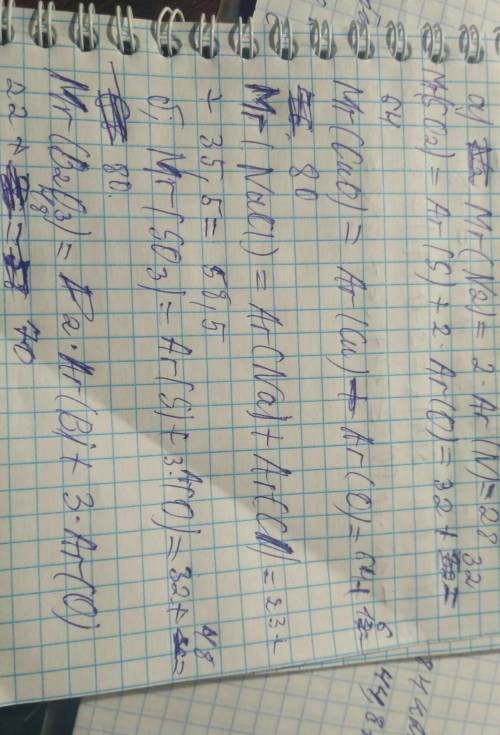 а) Mr(N2) = 2 · Ar(N) = 28
Mr(SO2) = Ar(S) + 2 · Ar(O) = 32 + 32 =
64
Mr(CuO) = Ar(Cu) + Ar(O) = 64 + 16
80
Mr(NaCl) = Ar(Na) + Ar(Cl) = 23 +
+ 35,5 = 58,5
б) Mr(SO3) = Ar(S) + 3 · Ar(O) = 32 + 48 =
80.
Mr(B2O3) = 2 · Ar(B) + 3 · Ar(O)
22 + 48 = 70